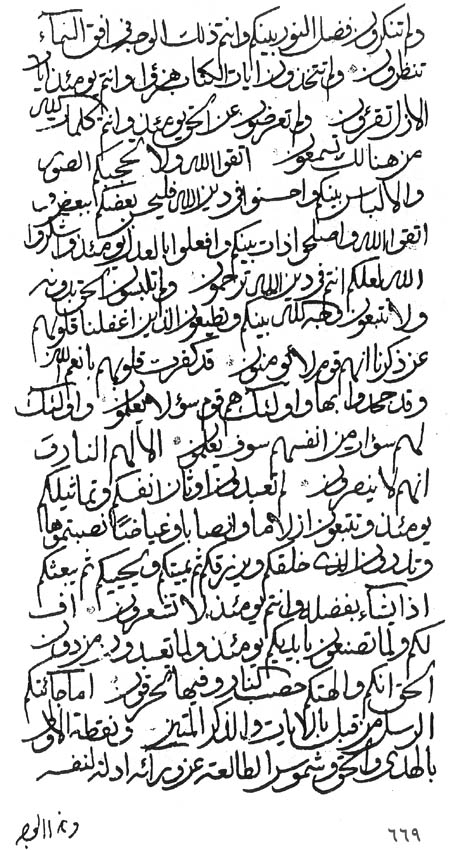 ولم تنكرون فضل النور بينكم وانتم ذلك الوجه في افق السماء
تنظرون ولم تتخذون آيات الكتاب هزؤا وانتم يومئذ آيات
الازل تقرئون ولم تعرضون عن الحق يومئذ وانتم كلمات الله
من هنالك تسمعون اتقوا الله ولا تحجبكم الصور
والالباس بينكم واحسنوا في دين الله فليحن بعضكم ببعض
اتقوا الله واصلحوا ذات بينكم وافعلوا بالعدل يومئذ واشكروا
الله لعلكم انتم في دين الله ترحمون ولم تلبسون الحق
ولا تتبعون بينكم وتطيعون الذين اغفلنا قلوبهم
عن ذكرنا انهم قوم لا يؤمنون قد كفرت قلوبهم بانعم الله
وقد جحدوا بها واولئك هم قوم سوء لا يعلمون واولئك
لهم سؤال من انفسهم سوف يعلمون الا لهم النار
انهم لا ينصرون لم تعبدون اوثان انفسكم وتماثيلكم
يومئذ وتتبعون ازلاما وانصابا واغياضا نصبتموها
وتذرون الذي خلقكم ويرزقكم ثم يميتكم ويحييكم ثم يبعثكم
اذا شاء بفضله وانتم يومئذ لا تشعرون اف
لكم ولما تصنعون بايديكم يومئذ ولما تعبدون من دون
الحق انكم وآلهتكم حصب النار وفيها تحرقون اما جائتكم
الرسل من قبل بالآيات والذكر المتين ونقطة الاولى
بالهدى والحق وشموس الطالعة عن ورائه ادلة لنفسه
٦٦٩